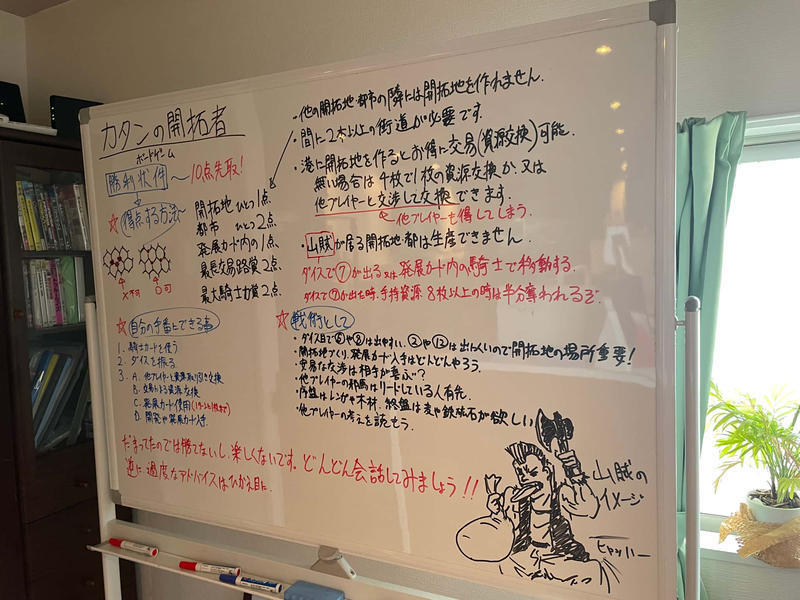 カタンの開拓者
ボードゲーム
勝利状件〜10点先取!
☆得点する方法〜
開拓地 ひとつ1点
都市 ひとつ2点
発展カード内の1点
最長交易路賞2点
最大騎士力賞2点
×不可
○可
☆自分の手番にできる事
1. 騎士カードを使う
2. ダイスを振る
3. A. 他プレイヤーと資源取り引き交換
B. 交易による資源交換
C. 発展カード使用(1ターン1枚まで)
D. 開発や発展カード入手
・他の開拓地・都市の隣には開拓地を作れません.
・間に2本以上の街道が必要です.
・港に開拓を作るとお得に交易(資源交換)可能.
無い場合は4枚で1枚の資源交換か、又は
他プレイヤーと交渉して交換できます.
他プレイヤーも得してしまう.
・山賊が居る開拓地・都は生産できません.
ダイスで⑦が出る又は発展カード内の騎士で移動する.
ダイスで⑦が出た時、手持資源8枚以上の時は半分奪われるぞ
☆戦術として
・ダイス目で⑥や⑧は出やすい. ②や⑫は出にくいので開拓地の場所重要!
・開拓地づくり、発展カード入手はどんどんやろう.
・安易な交渉は相手が喜ぶ?
・他プレイヤーの邪魔はリードしている人有先.
・序盤はレンガや木材. 終盤は麦や鉄鉱石が欲しい
・他プレイヤーの考えを読もう.
だまってたのでは勝てないし、楽しくないです。どんどん会話してみましょう!!
逆に、過度なアドバイスはひかえ目に.
山賊の
イメージ
ヒャッハー